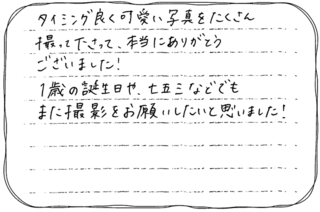 タイミング良く可愛い写真をたくさん
撮って下さって、本当にありがとう
ございました!
1歳の誕生日や、七五三などでも
また撮影をお願いしたいと思いました!